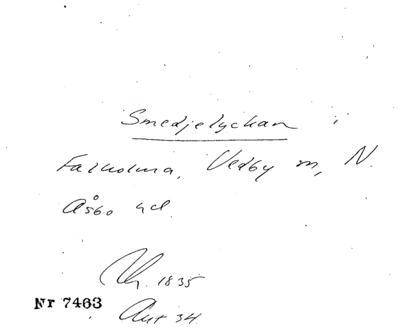 Smedjelyckan i
Falholma, Vedby m, N.
Åsbo hd.
1835
Nr 7463
Akt 34.